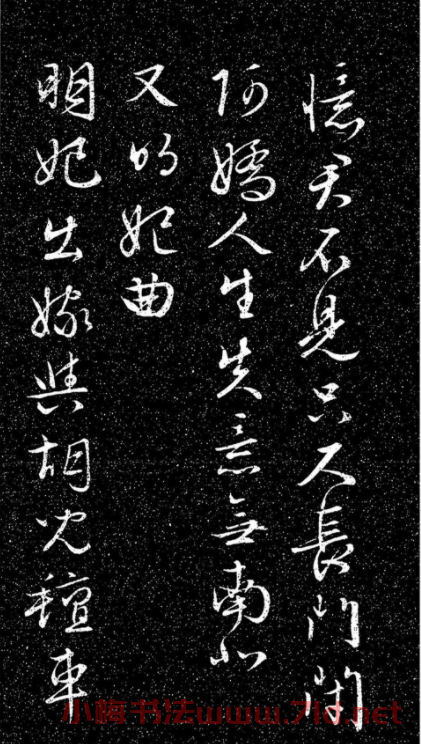 憶君不見只尺長門閉
阿嬌人生失意無南北
又明妃曲
明妃出嫁與胡兒氊車
小梅书法www.7ld.net